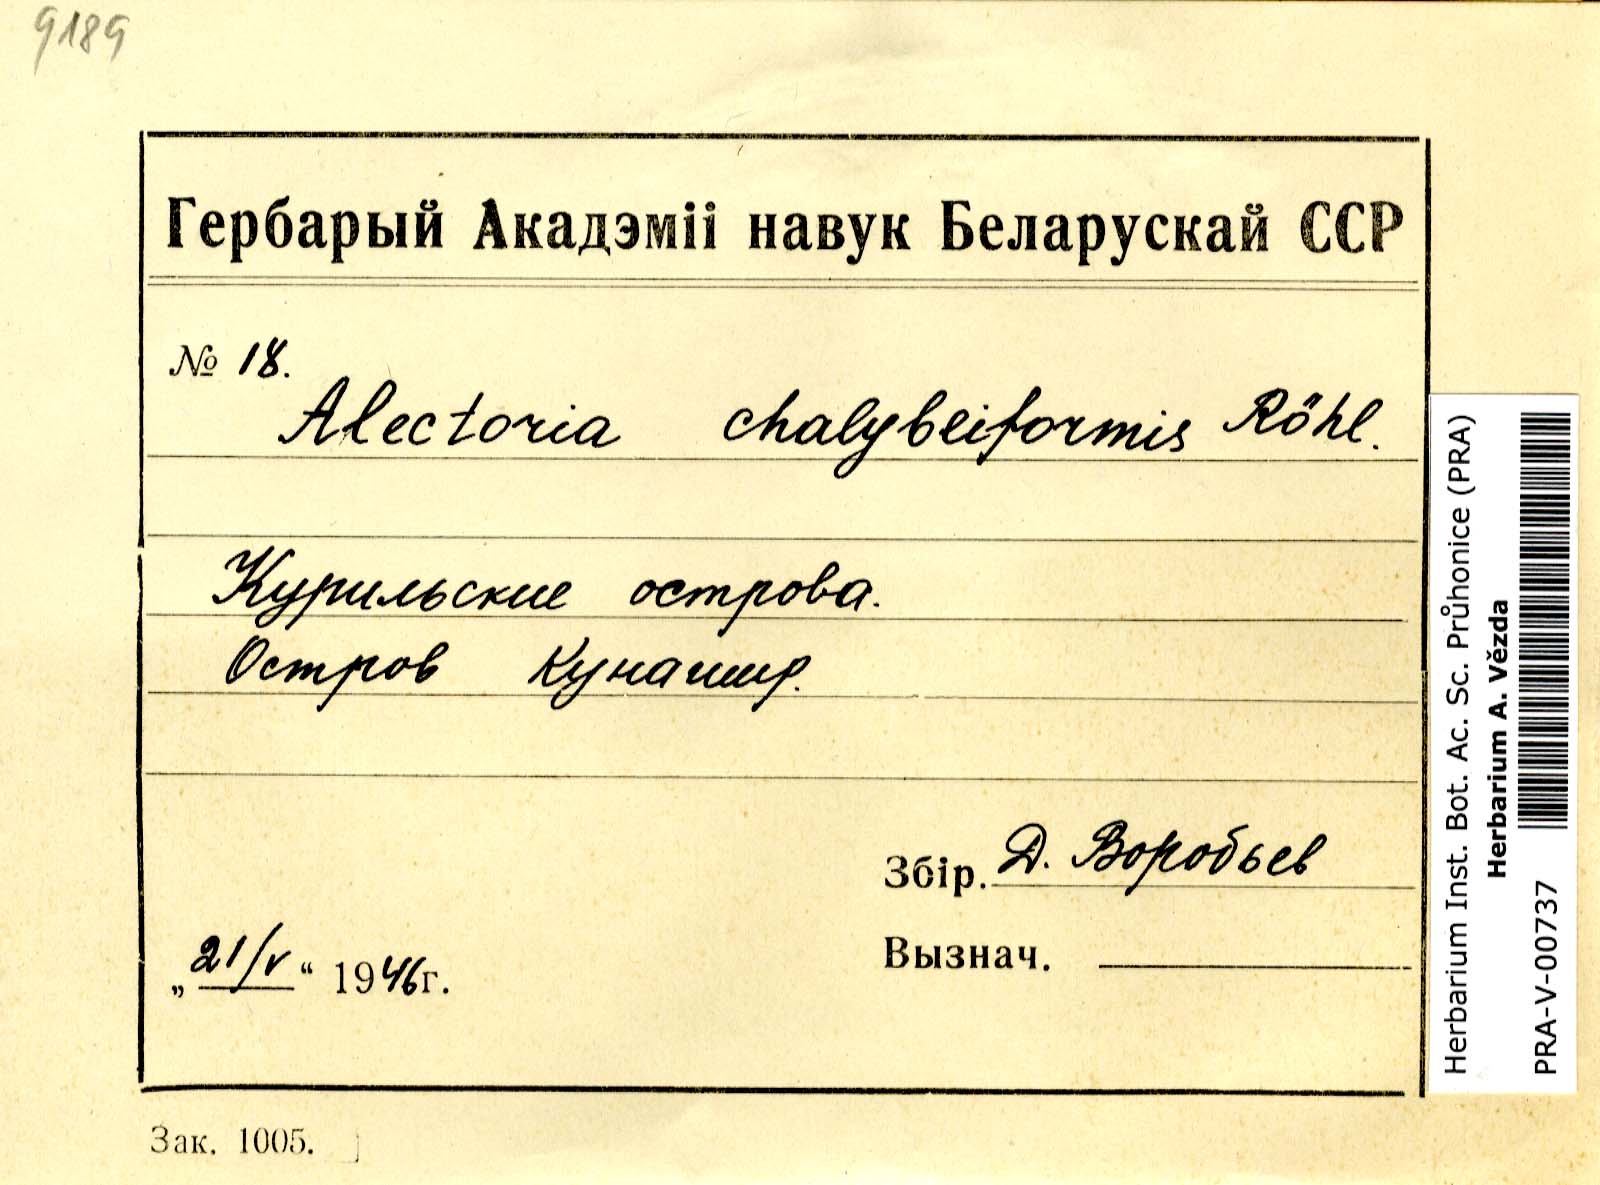 9189
Гербарый Акадэміі навук Беларускай ССР
№ 18.
Alectoria chalybeiformis Röhl.
Курильские острова.
Остров Кунашир.
Збір. Д. Воробьев
Вызнач.
„21/V“ 1946г.
Зак. 1005.
Herbarium Inst. Bot. Ac. Sc. Průhonice (PRA)
Herbarium A. Vězda
PRA-V-00737